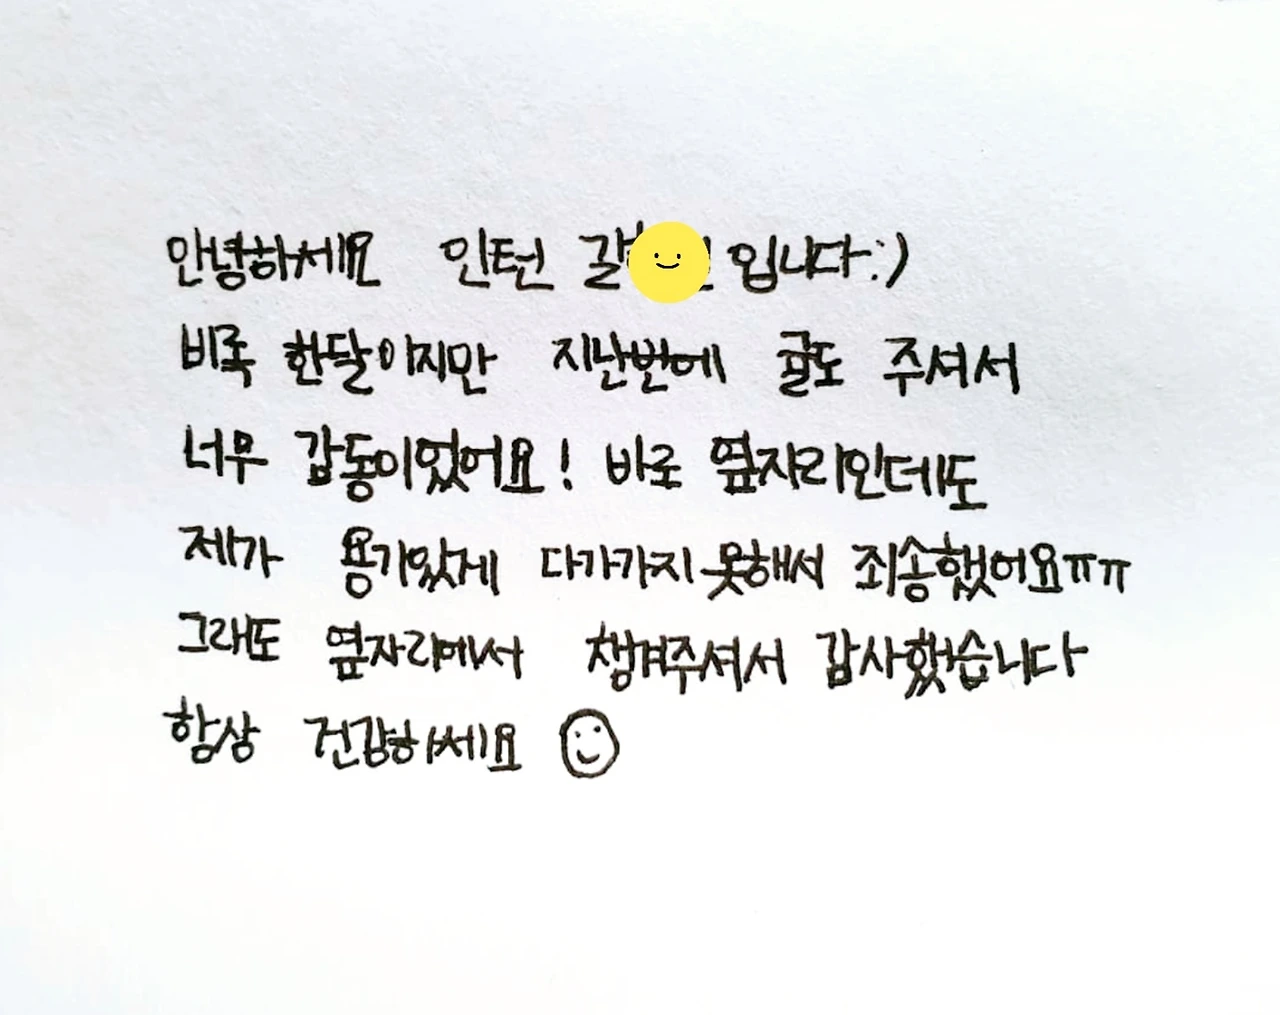 안녕하세요 인턴 길 입니다:)
비록 한달이지만 지난번에 귤도 주셔서
너무 감동이었어요! 바로 옆자리인데도
제가 용기있게 다가가지 못해서 죄송했어요ㅠㅠ
그래도 옆자리에서 챙겨주셔서 감사했습니다
항상 건강하세요